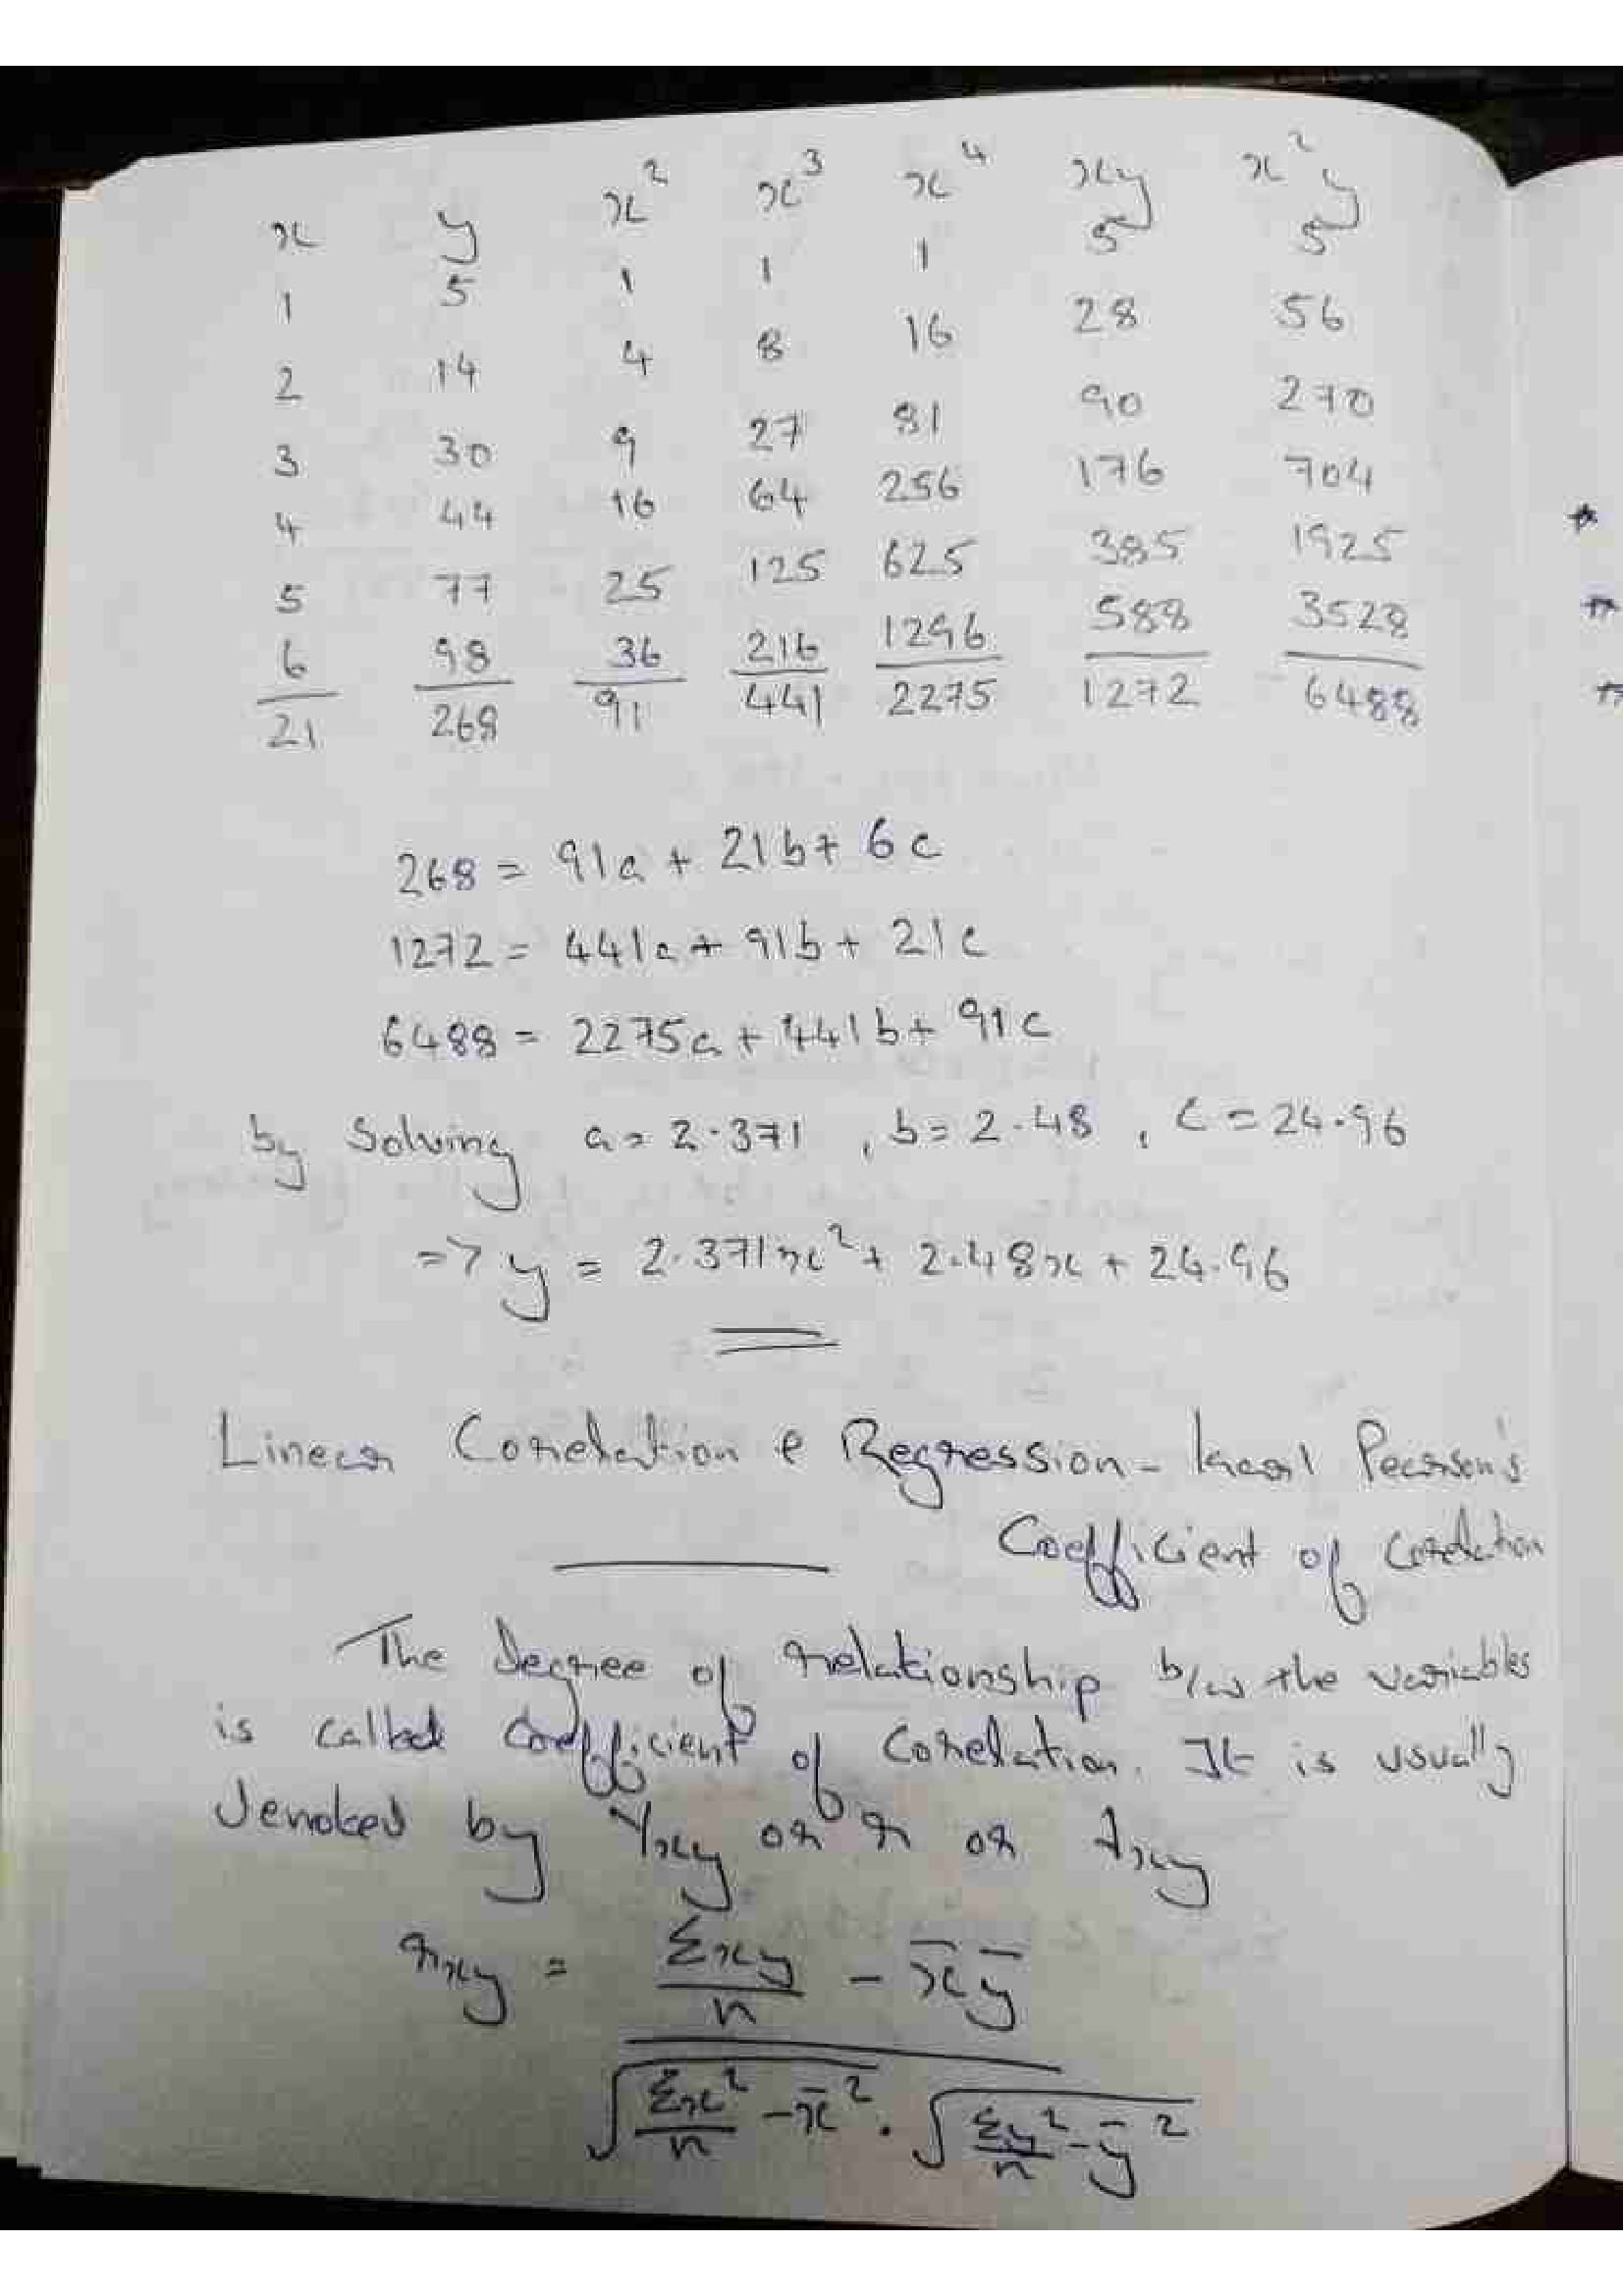 x y x² x³ x⁴ xy x²y
1 5 1 1 1 5 5
2 14 4 8 16 28 56
3 30 9 27 81 90 270
4 44 16 64 256 176 704
5 77 25 125 625 385 1925
6 98 36 216 1296 588 3528
21 268 91 441 2275 1272 6488
268 = 91a + 21b + 6c
1272 = 441a + 91b + 21c
6488 = 2275a + 441b + 91c
by Solving a = 2.371 , b = 2.48 , c = 24.96
=> y = 2.371x² + 2.48x + 24.96
Linear Corelation & Regression - Karl Pearson's
Coefficient of Corelation
The degree of relationship b/w the variables
is called Coefficient of Corelation. It is usually
denoted by γxy or r or
rxy = (Σxy/n - x̄ȳ) / (√(Σx²/n - x̄²) . √(Σy²/n - ȳ²))